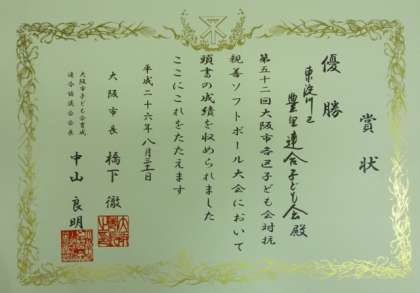 賞状
優勝
東淀川区
豊里連合子ども会殿
第五十二回大阪市各区子ども会対抗
親善ソフトボール大会において
頭書の成績を収められました
ここにこれをたたえます
平成二十六年八月三十一日
大阪市長 橋下徹
大阪市子ども会育成
連合協議会会長 中山良明